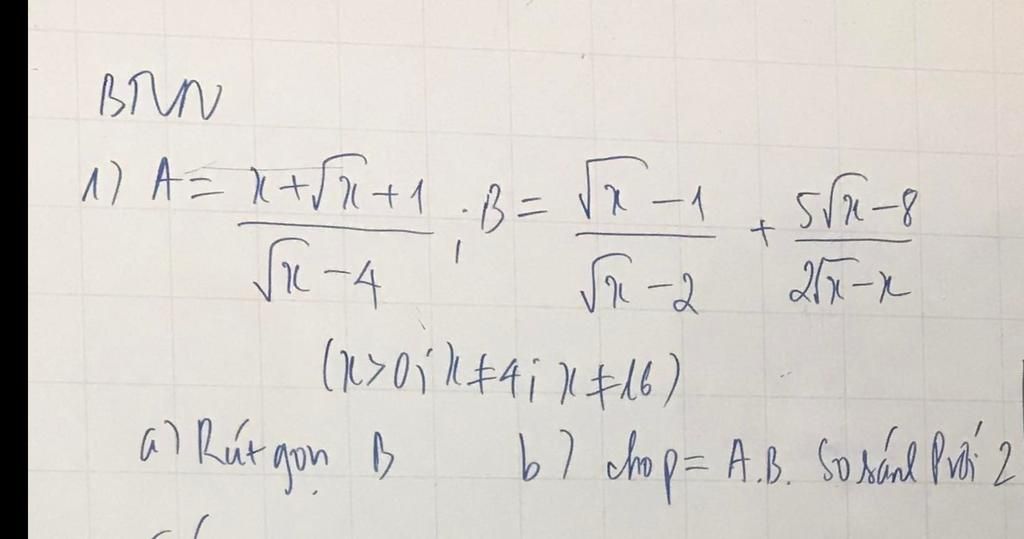 BTVN
1) A = (x+√x+1)/(√x-4) ; B = (√x-1)/(√x-2) + (5√x-8)/(2√x-x)
(x>0; x≠4; x≠16)
a) Rút gọn B b) cho P = A.B. So sánh P với 2